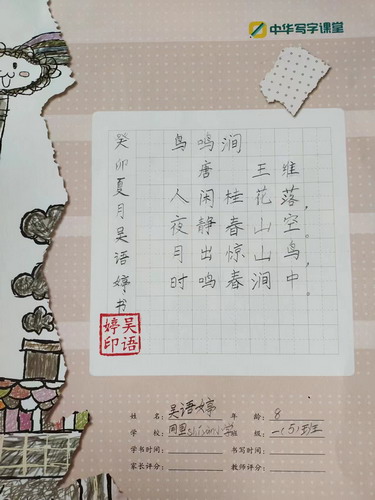 中华写字课堂
鸟鸣涧
唐 王维
人闲桂花落，
夜静春山空。
月出惊山鸟，
时鸣春涧中。
癸卯夏月吴语婷书
吴语婷印
姓名：吴语婷 年龄：8
学校：同里shiyan小学 班级：一(5)班
学书时间： 书写时间：
家长评分： 教师评分：